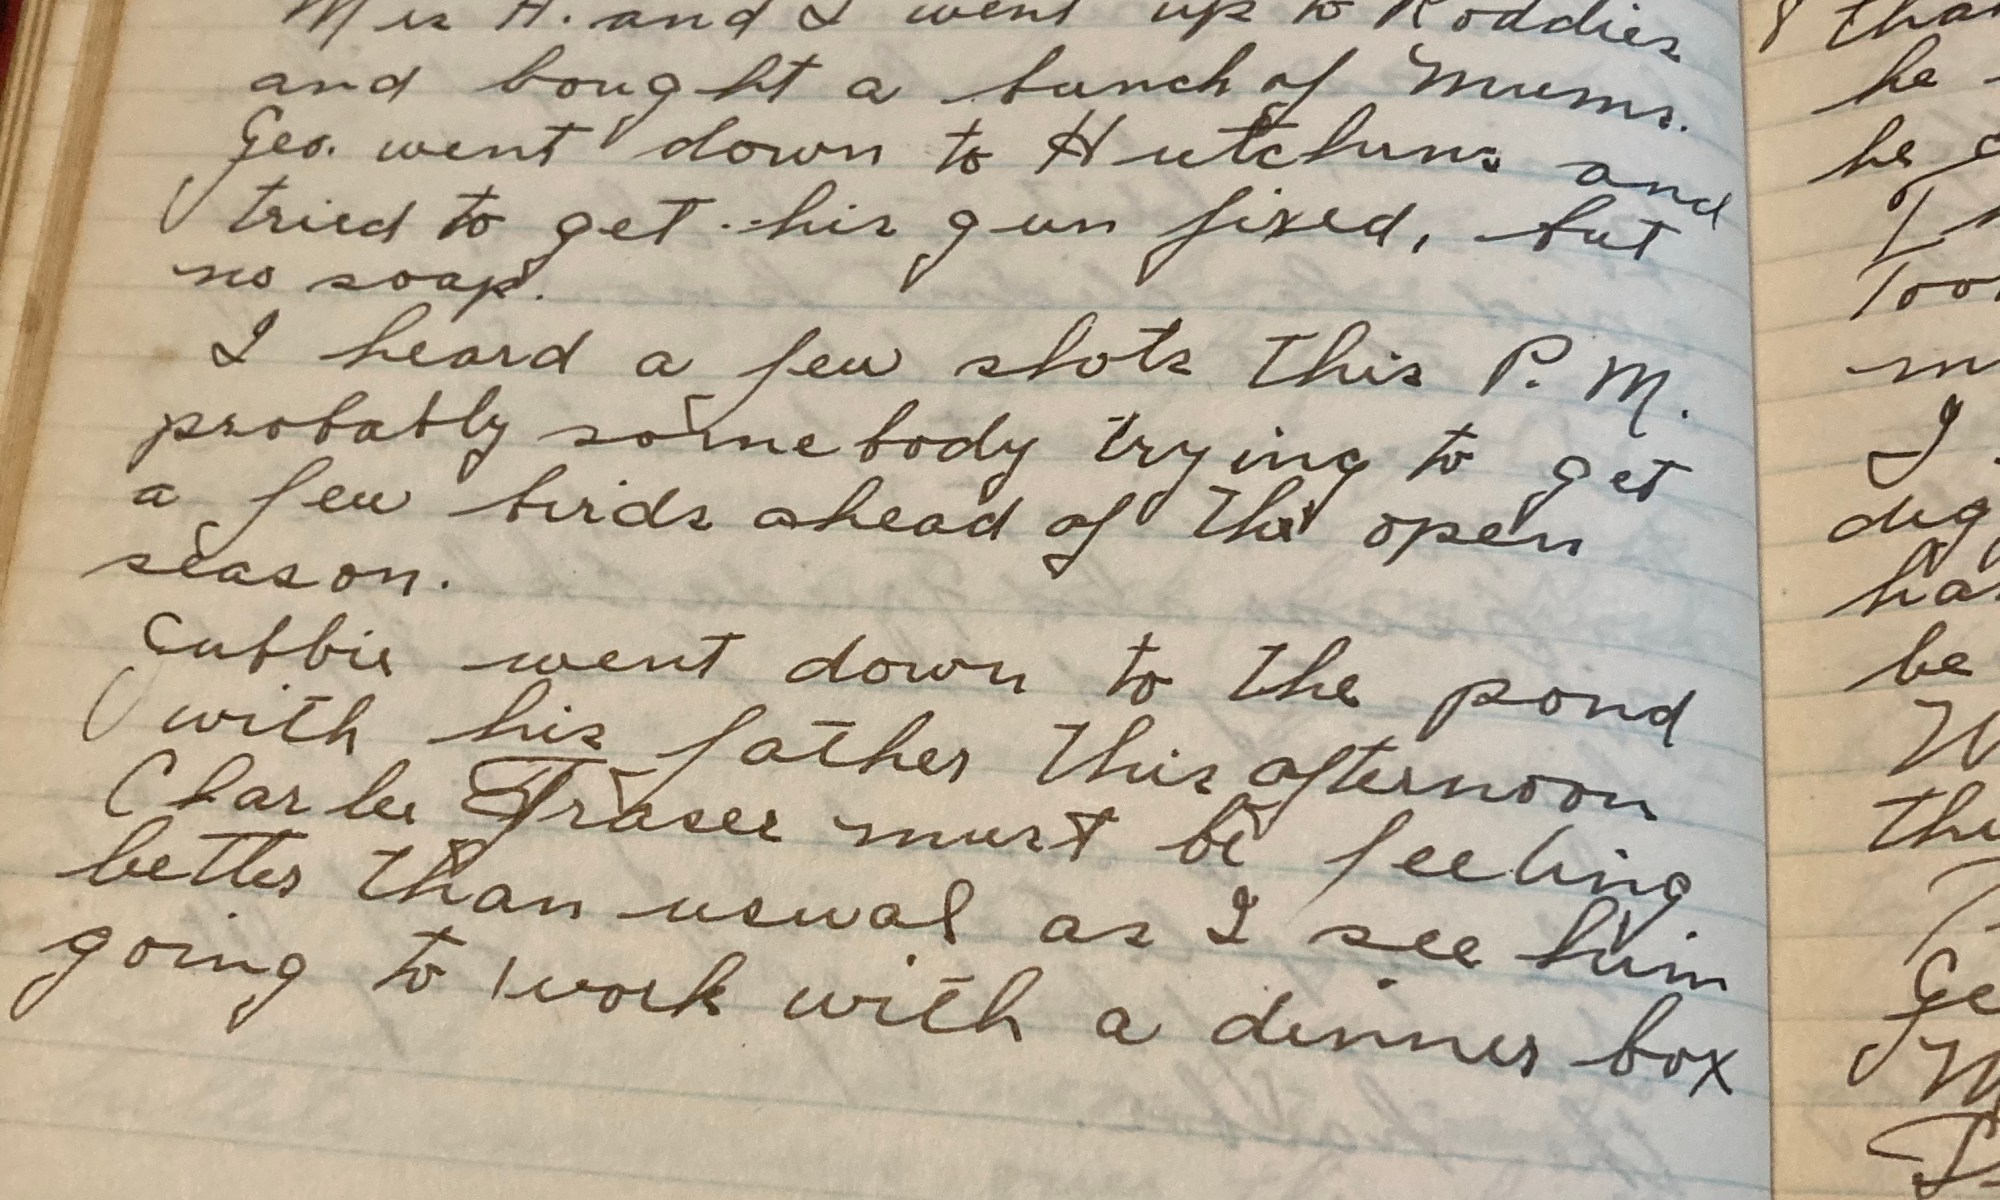 Mrs H. and I went up to Roddies
and bought a bunch of Mums.
Geo. went down to Hutchins and
tried to get his gun fixed, but
no soap.
I heard a few shots this P. M.
probably somebody trying to get
a few birds ahead of the open
season.
Gubbie went down to the pond
with his father this afternoon
Charlie Fraser must be feeling
better than usual as I see him
going to work with a dinner box
he
he
I
be